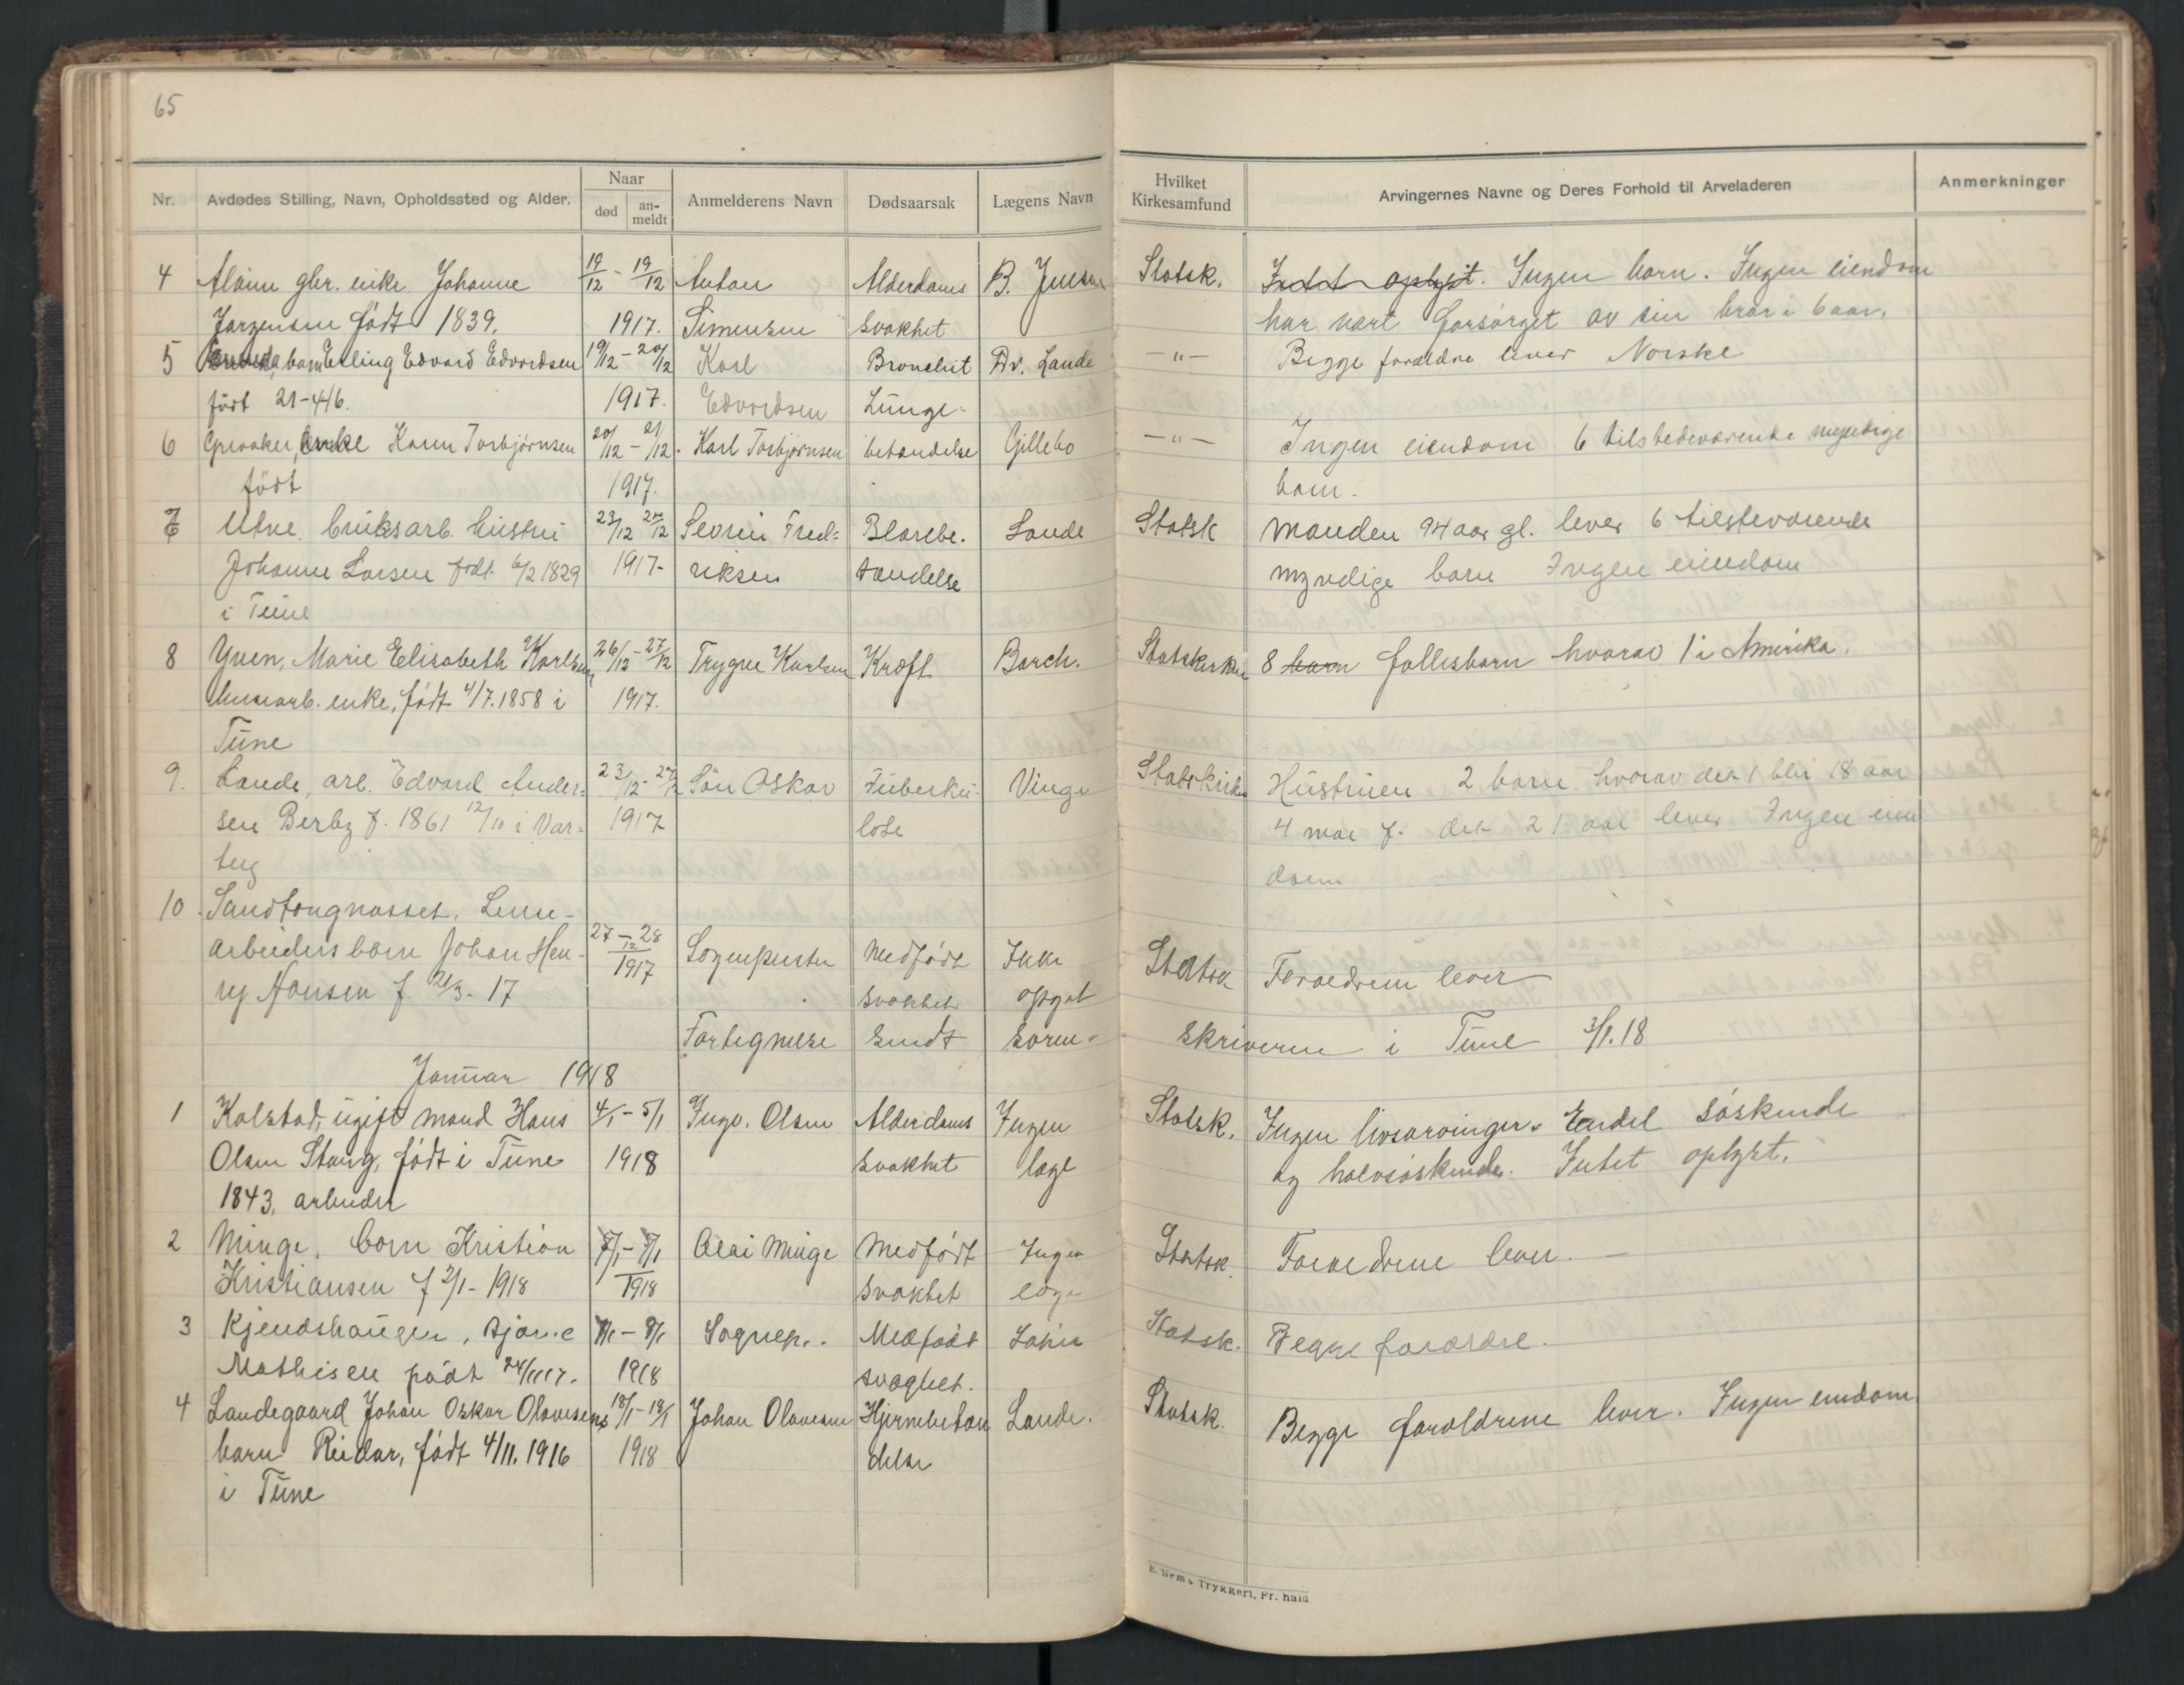 65
Nr. Avdødes Stilling, Navn, Opholdssted og Alder. Naar død anmeldt Anmelderens Navn Dødsaarsak Lægens Navn Hvilket Kirkesamfund Arvingernes Navne og Deres Forhold til Arveladeren Anmerkninger
4 gbr. enke Johanne 19/12 - 19/12 Anton Alderdoms B. Juesen Statsk. Intet oplyst. Ingen barn. Ingen eiendom
Jørgensen født 1839. 1917. Simensen svakhet har vært forsørget av sin bror i 6 aar.
5 barn Erling Edvard Edvardsen 19/12 - 20/12 Karl Bronchit Dr. Lande -"- Begge forældre lever Norske
født 21-4/16. 1917. Edvardsen Lunge-
6 Greaaker, enke Karen Torbjørnsen 20/12 - 21/12. Karl Torbjørnsen betændelse Gillebo -"- Ingen eiendom 6 tilstedeværende myndige
født 1917. barn.
7 Utne. bruksarb. hustru 23/12 24/12 Sevrin Fred- Blærebe- Lande Statsk manden 94 aar gl. lever 6 tilsteværende
Johanne Larsen født 6/2 1829 1917- riksen tændelse myndige barn Ingen eiendom
i Tune
8 Yven, Marie Elisabeth Karlsen 26/12 - 27/12 Trygve Karlsen Kræft Borch. Statskirken 8 barn fellesbarn hvorav 1 i Amerika.
enke, født 4/7. 1858 i 1917.
Tune
9. Lande, arb. Edvard Ander- 23/12 - 27/12 Søn Oskar Tuberku- Vinge Statskirken Hustruen 2 barn hvorav det 1 blir 18 aar
sen Berby f. 1861 12/10 i Var- 1917 lose 4 mai f. det 21 aar lever Ingen eien
teig dom
10. Sandtangnasset, Leme-
arbeiders barn Johan Hen- 27 - 28/12 Sogneprestn Medfødt Ikke Statsk Foreldrene lever
ry Hansen f. 21/3 - 17 1917 svakhet opgit
Fortegnelse sendt soren- skriveren i Tune 3/1. 18
Januar 1918
1 Kalstad, ugift mand Hans 4/1 - 5/1 Ingv. Olsen Alderdoms Ingen Statsk. Ingen livsarvinger. Endel søskende
Olsen Stang, født i Tune 1918 svakhet læge og halvsøskende. Intet oplyst.
1843, arbeider
2 Minge, barn Kristian 7/1 - 7/1 Olai Minge Medfødt Ingen Statsk. Forældrene lever. -
Kristiansen f 2/1 - 1918 1918 svakhet læge
3 Kjendshaugen, Bjarne 7/1 - 9/1 Sognep. Medfødt Statsk. Begge forældre.
Mathisen født 24/11 17. 1918 svaghet.
4 Landegaard Johan Oskar Olavesens 18/1 - 18/1 Johan Olavesen Hjernebetæn Lande. Statsk. Begge foreldrene lever. Ingen eiendom
barn Reidar, født 4/11. 1916 1918 delse
i Tune
E. Sem's Trykkeri, Fr. hald